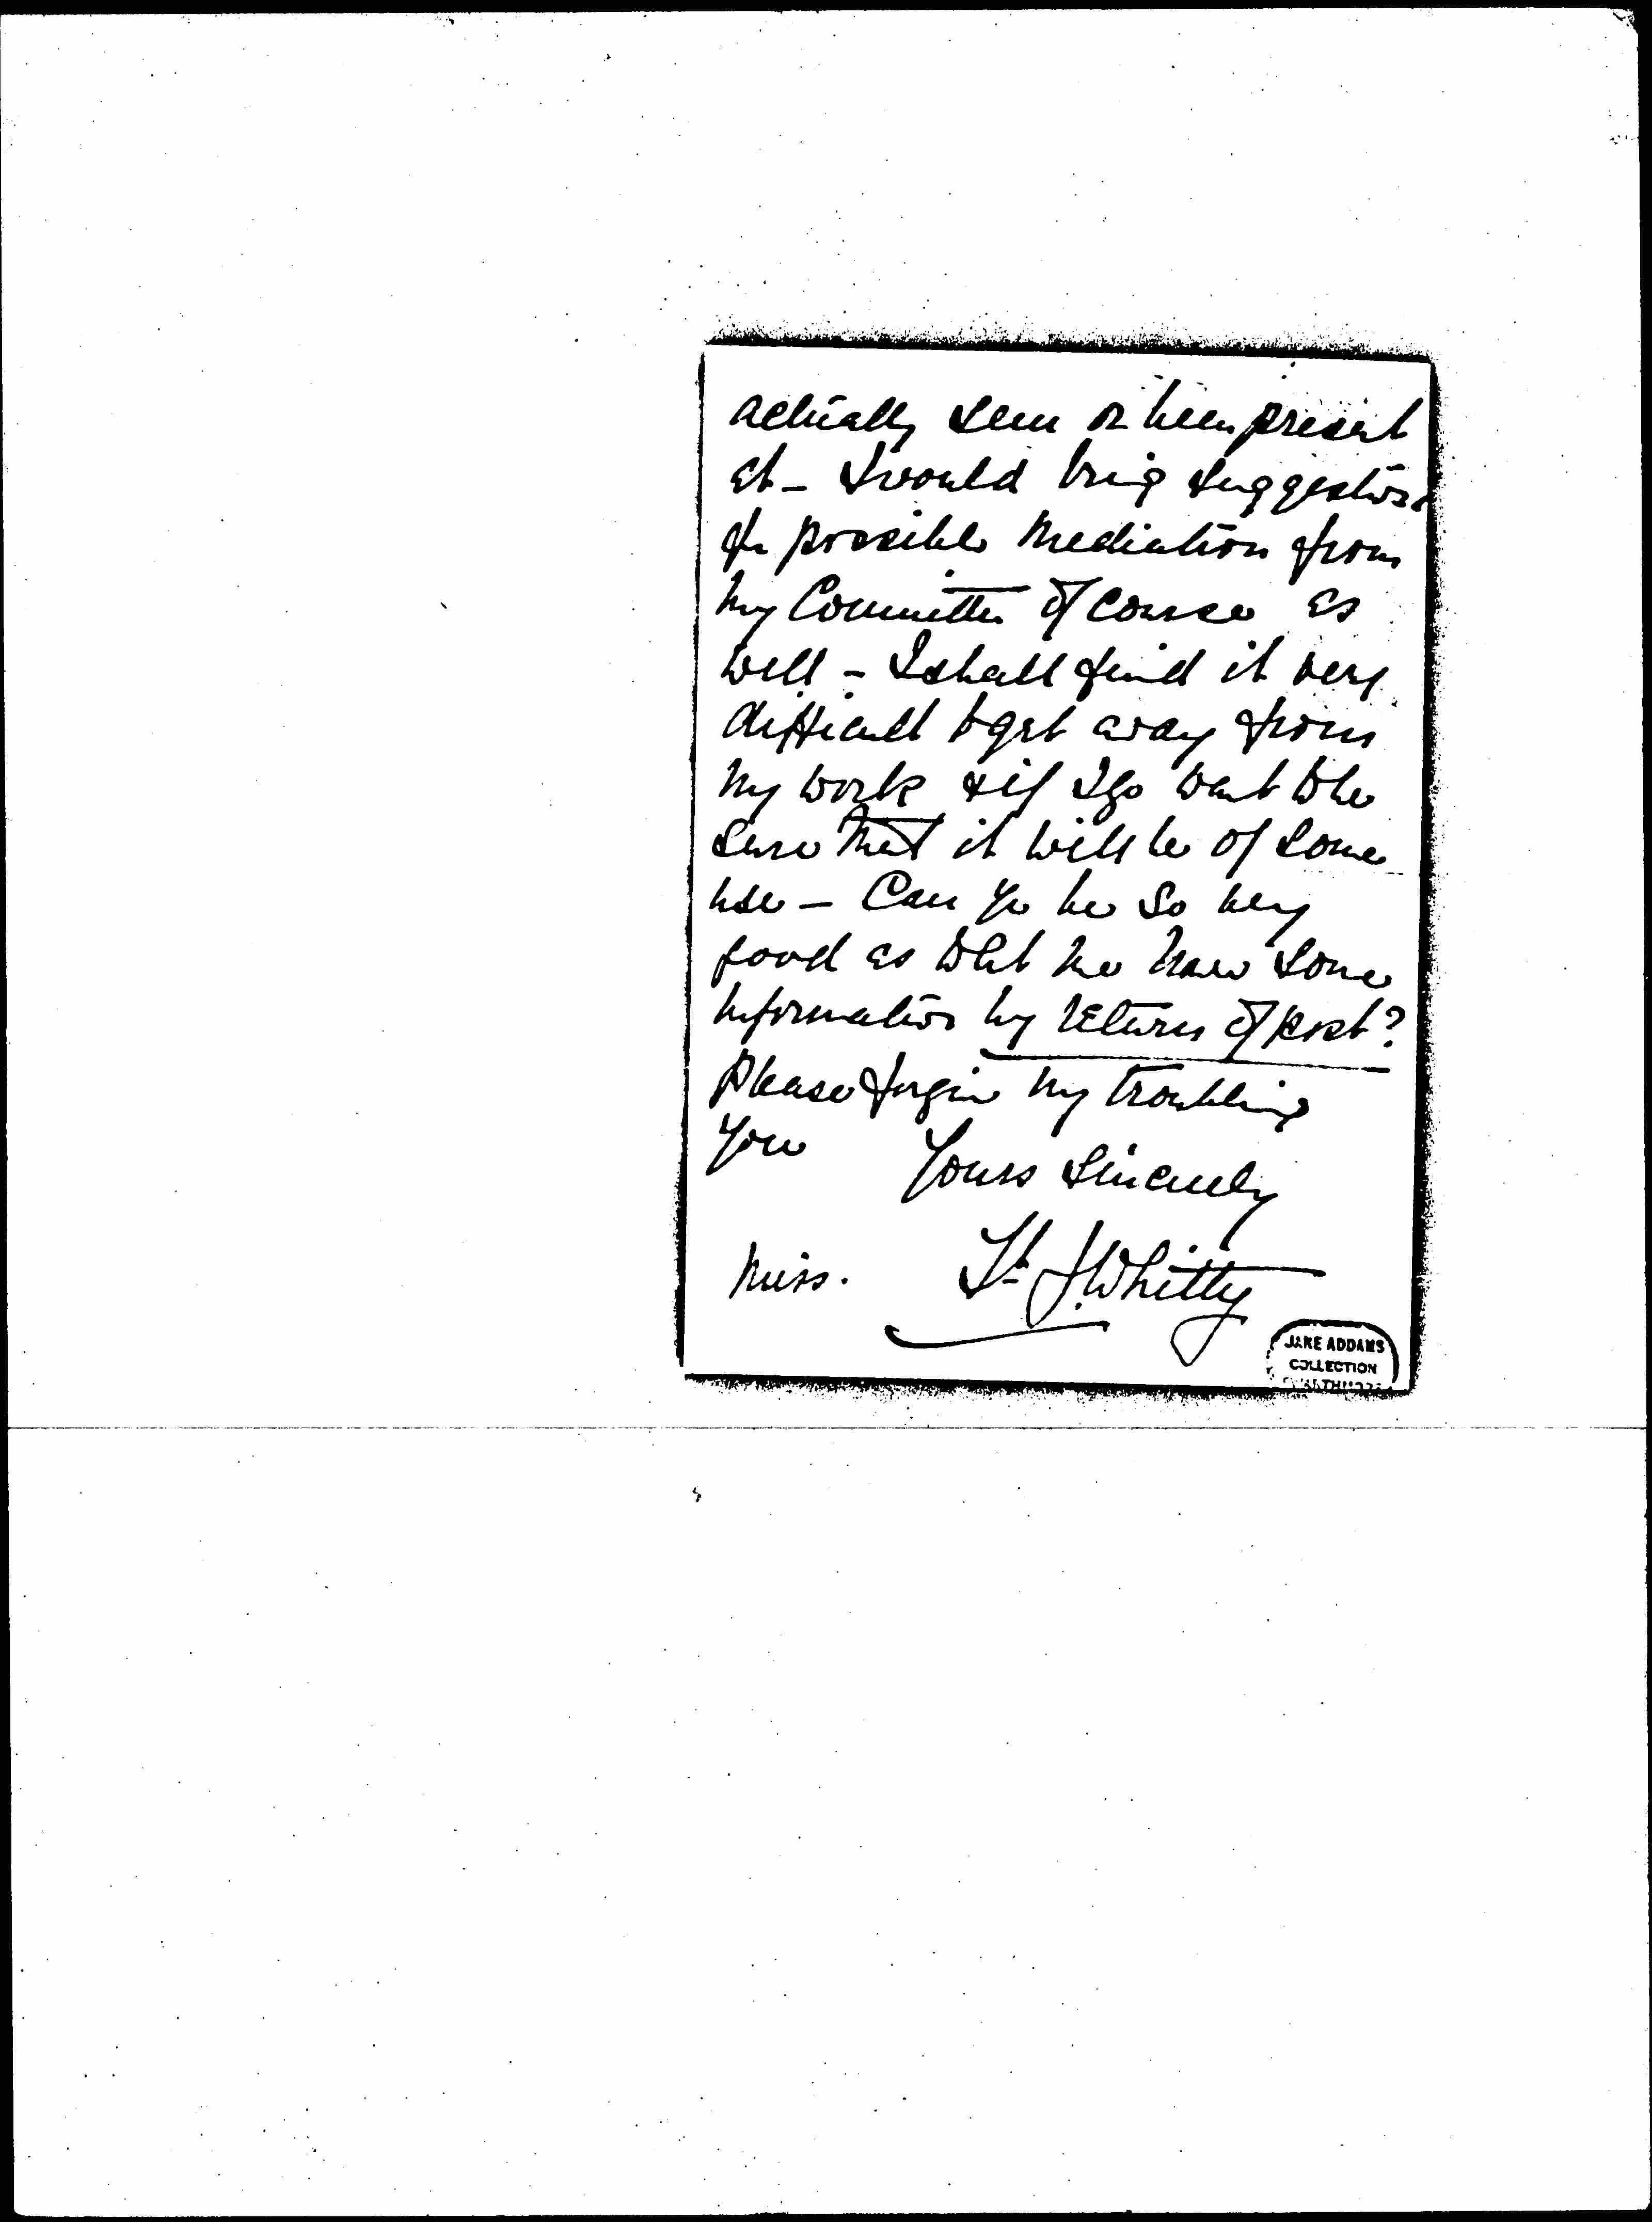 actually seen or been present
at - I would bring suggestions
for possible mediation from
my Committee of course as
well - I shall find it very
difficult to get away from
my work & if I go want to be
sure that it will be of some
use - Can you be so very
good as to let me have some
information by return of post?
Please forgive my troubling
you
Yours sincerely
Miss. Whitty
JANE ADDAMS
COLLECTION